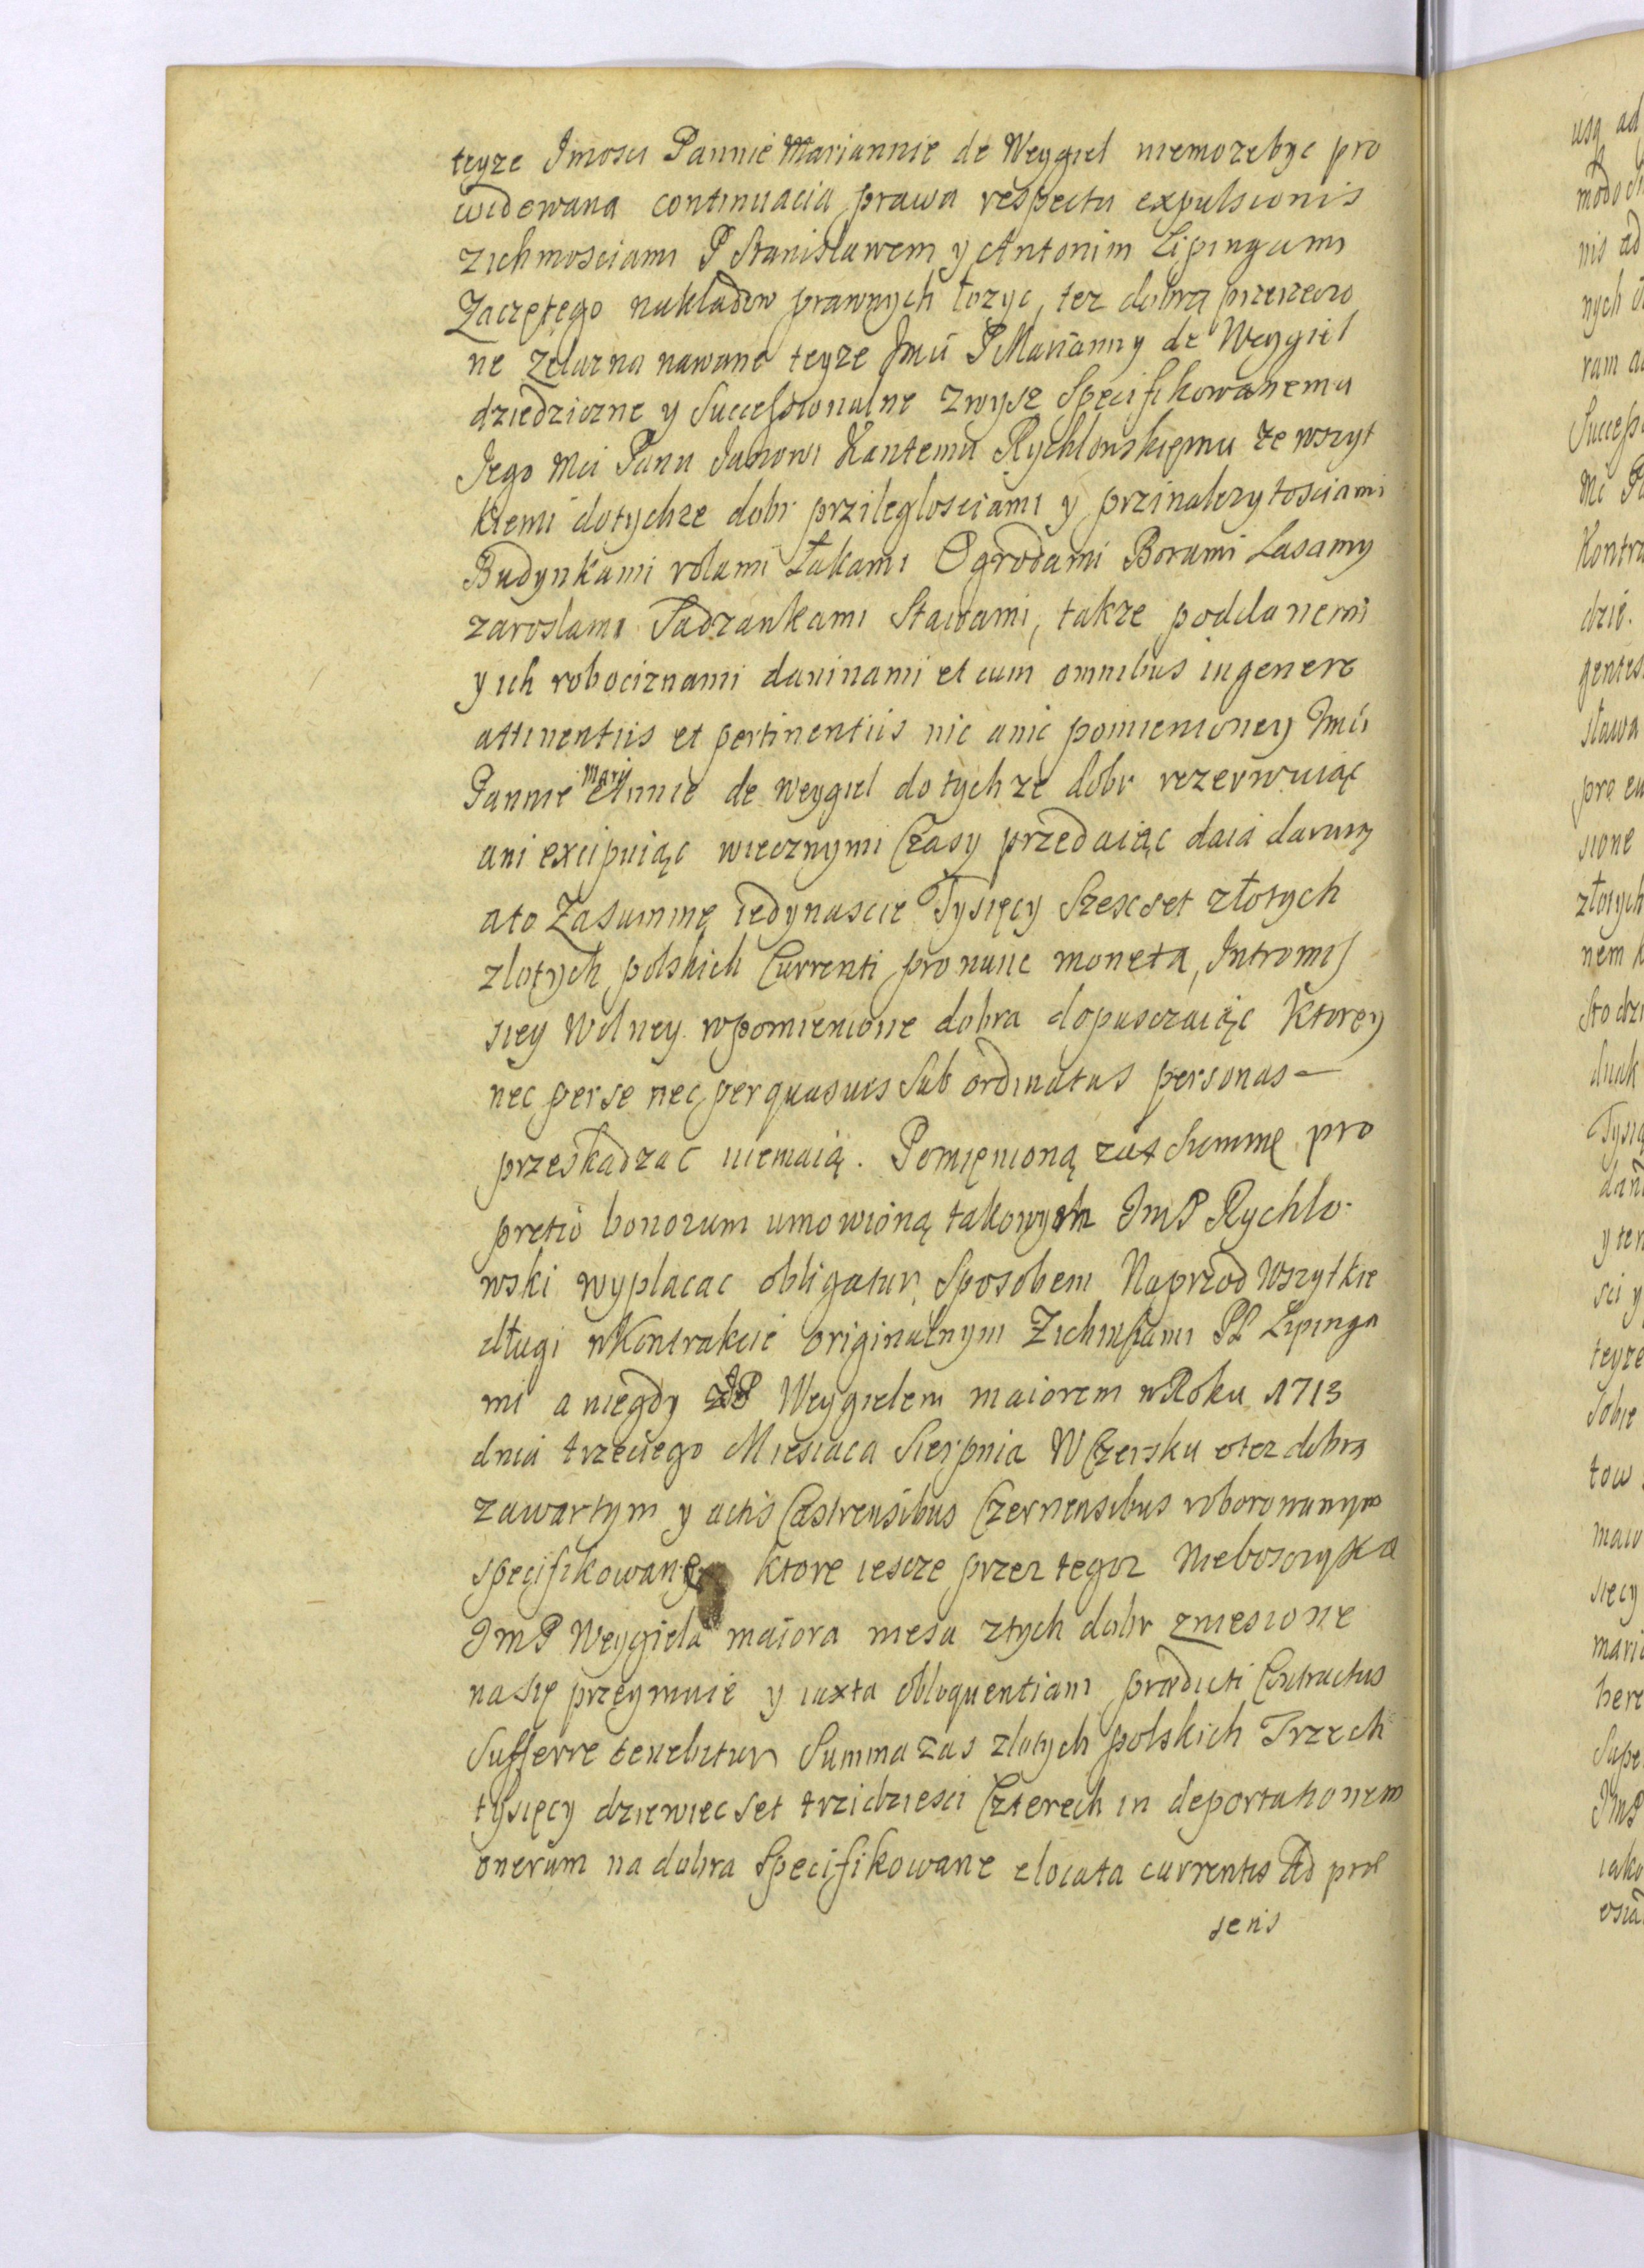 teyze Jmosci Pannie Mariannie de Weygiel niemozebyc pro
widowana continuacia prawa respectu expulsionis
zichmosciami P Stanisławem y Antonim Lipingami
Zaczętego nakładow prawnych łozyc, tez dobra przerzeczo
ne Zelazna nazwane teyze Jmci P Marianny de Weygiel
dziedziczne y Successionalne zwysz specifikowanemu
Jego Mci Panu Janowi Kantemu Rychłowskięmu ze wszyt
kiemi dotychze dobr przileglosciami y przinalezytosciami
Budynkami rolami Łakami Ogrodami Borami Lasamy
zaroslami Sadzankami Stawami, takze poddanemi
y ich robociznami daninami et cum omnibus ingenere
attinentiis et pertinentiis nic anic pomienioney Jmci
Pannie Mary Annie de Weygiel do tych ze dobr rezerwuiąc
ani excipuiąc wiecznymi Czasy przedaiąc daia daruią
ato Zasummę iedynascie Tysięcy Szescset złotych
zlotych polskich Currenti pro nunc moneta, Intromis
siey Wolney wpomienione dobra dopusczaiąc Ktorey
nec per se nec per quasuis Sub ordinatas personas
przeskadzac niemaią. Pomięnioną zas Summę pro
pretio bonorum umowioną takowym JmP Rychlo-
wski wyplacac obligatur Sposobem Naprzod Wszytkie
długi wKontrakcie originalnym Zichmsciami PP Lipinga
mi a niegdy Weygielem maiorem wRoku 1713
dnia trzeciego Miesiaca Sierpnia W Czersku otez dobra
zawartym y actis Castrensibus Czernensibus roborowanym
specifikowane ktore iescze przez tegoz Nieboszczyka
JmP Weygiela maiora niesa ztych dobr zniesione
na się przeymuie y iuxta obloquentiam prædicti Contractus
Sufferre tenebitur Summa zas zlotych polskich Trzech
tysięcy dziewiec set trzidziesci Czterech in deportationem
onerum na dobra Specifikowane elocata currentis Ad præ
sens